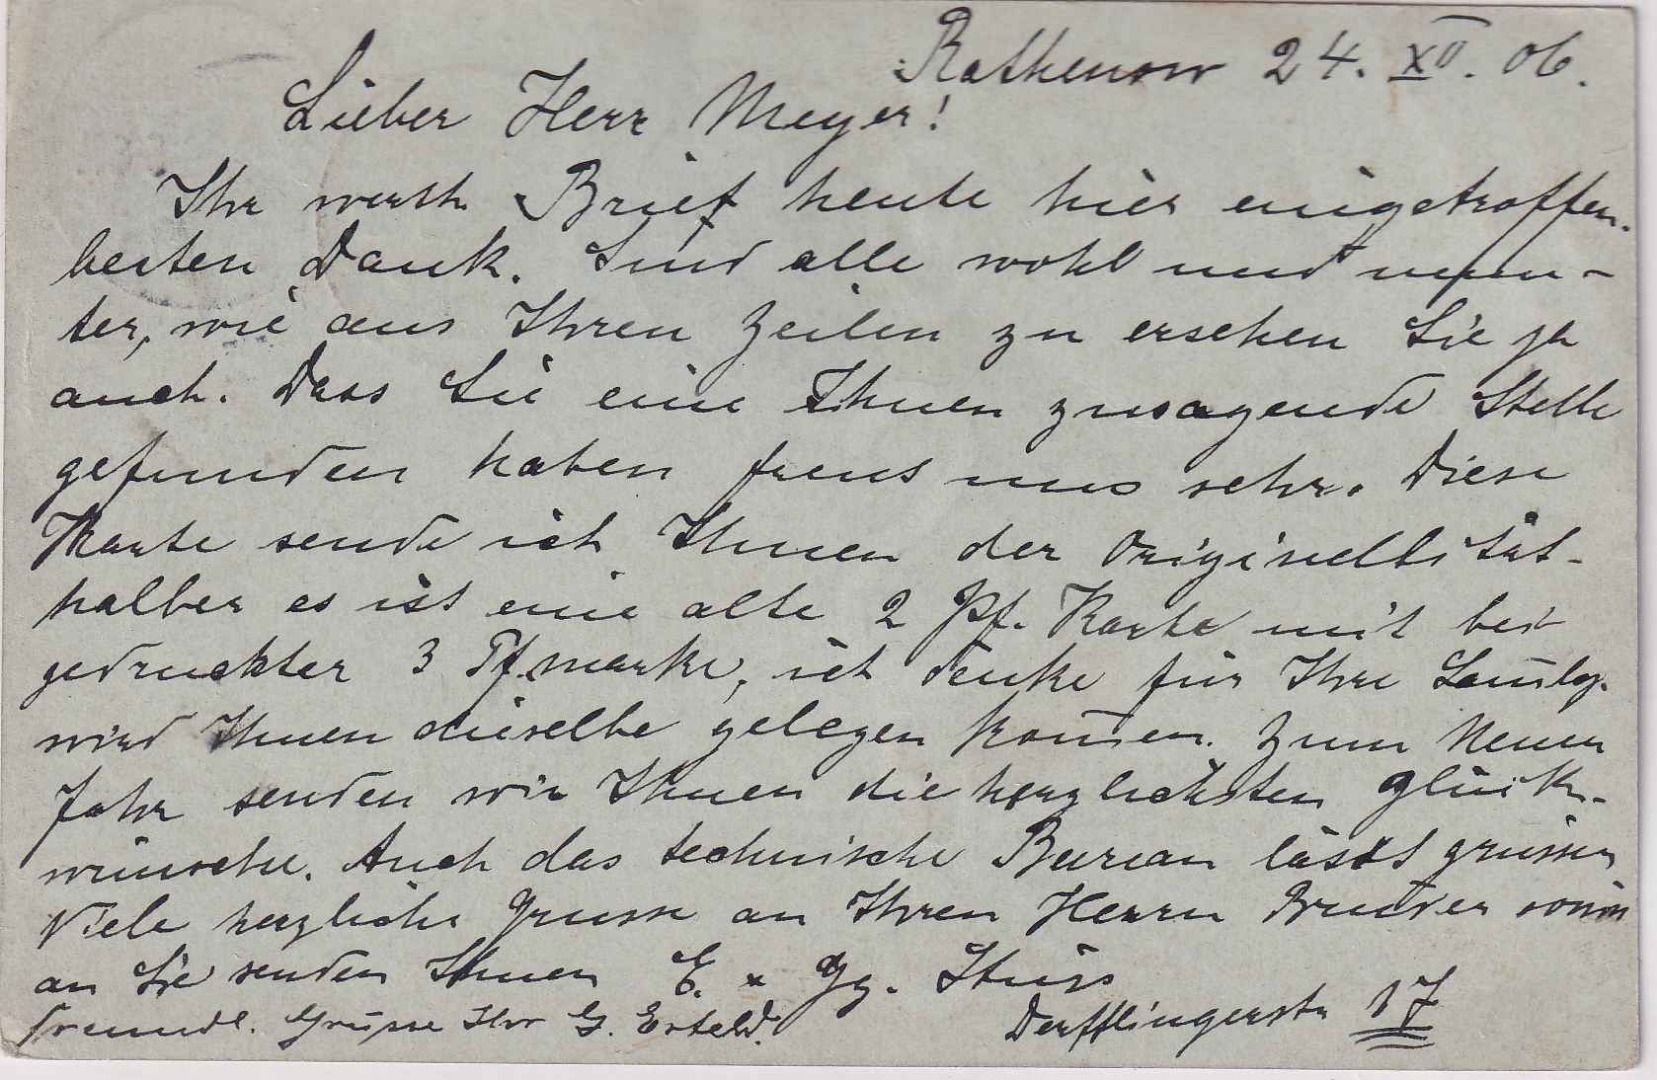 Rathenow 24. XII. 06.
Lieber Herr Meyer!
Ihr werth. Brief heute hier eingetroffen.
besten Dank. Sind alle wohl und mun-
ter, wie aus Ihren Zeilen zu ersehen Sie ja
auch. Dass Sie eine Ihnen zusagende Stelle
gefunden haben freut uns sehr. Diese
Karte sende ich Ihnen der Originellität-
halber es ist eine alte 2 Pf. Karte mit bei
gedruckter 3 Pf.marke, ich denke für Ihre Samlg.
wird Ihnen dieselbe gelegen kom̄en. Zum Neuen
Jahr senden wir Ihnen die herzlichsten Glück-
wünsche. Auch das technische Bureau lässt grüssen
Viele herzliche Grüsse an Ihren Herrn Bruder sowie
an Sie senden Ihnen E. & Gg.
freundl. Grüsse Ihr G.
Derfflingerstr 17